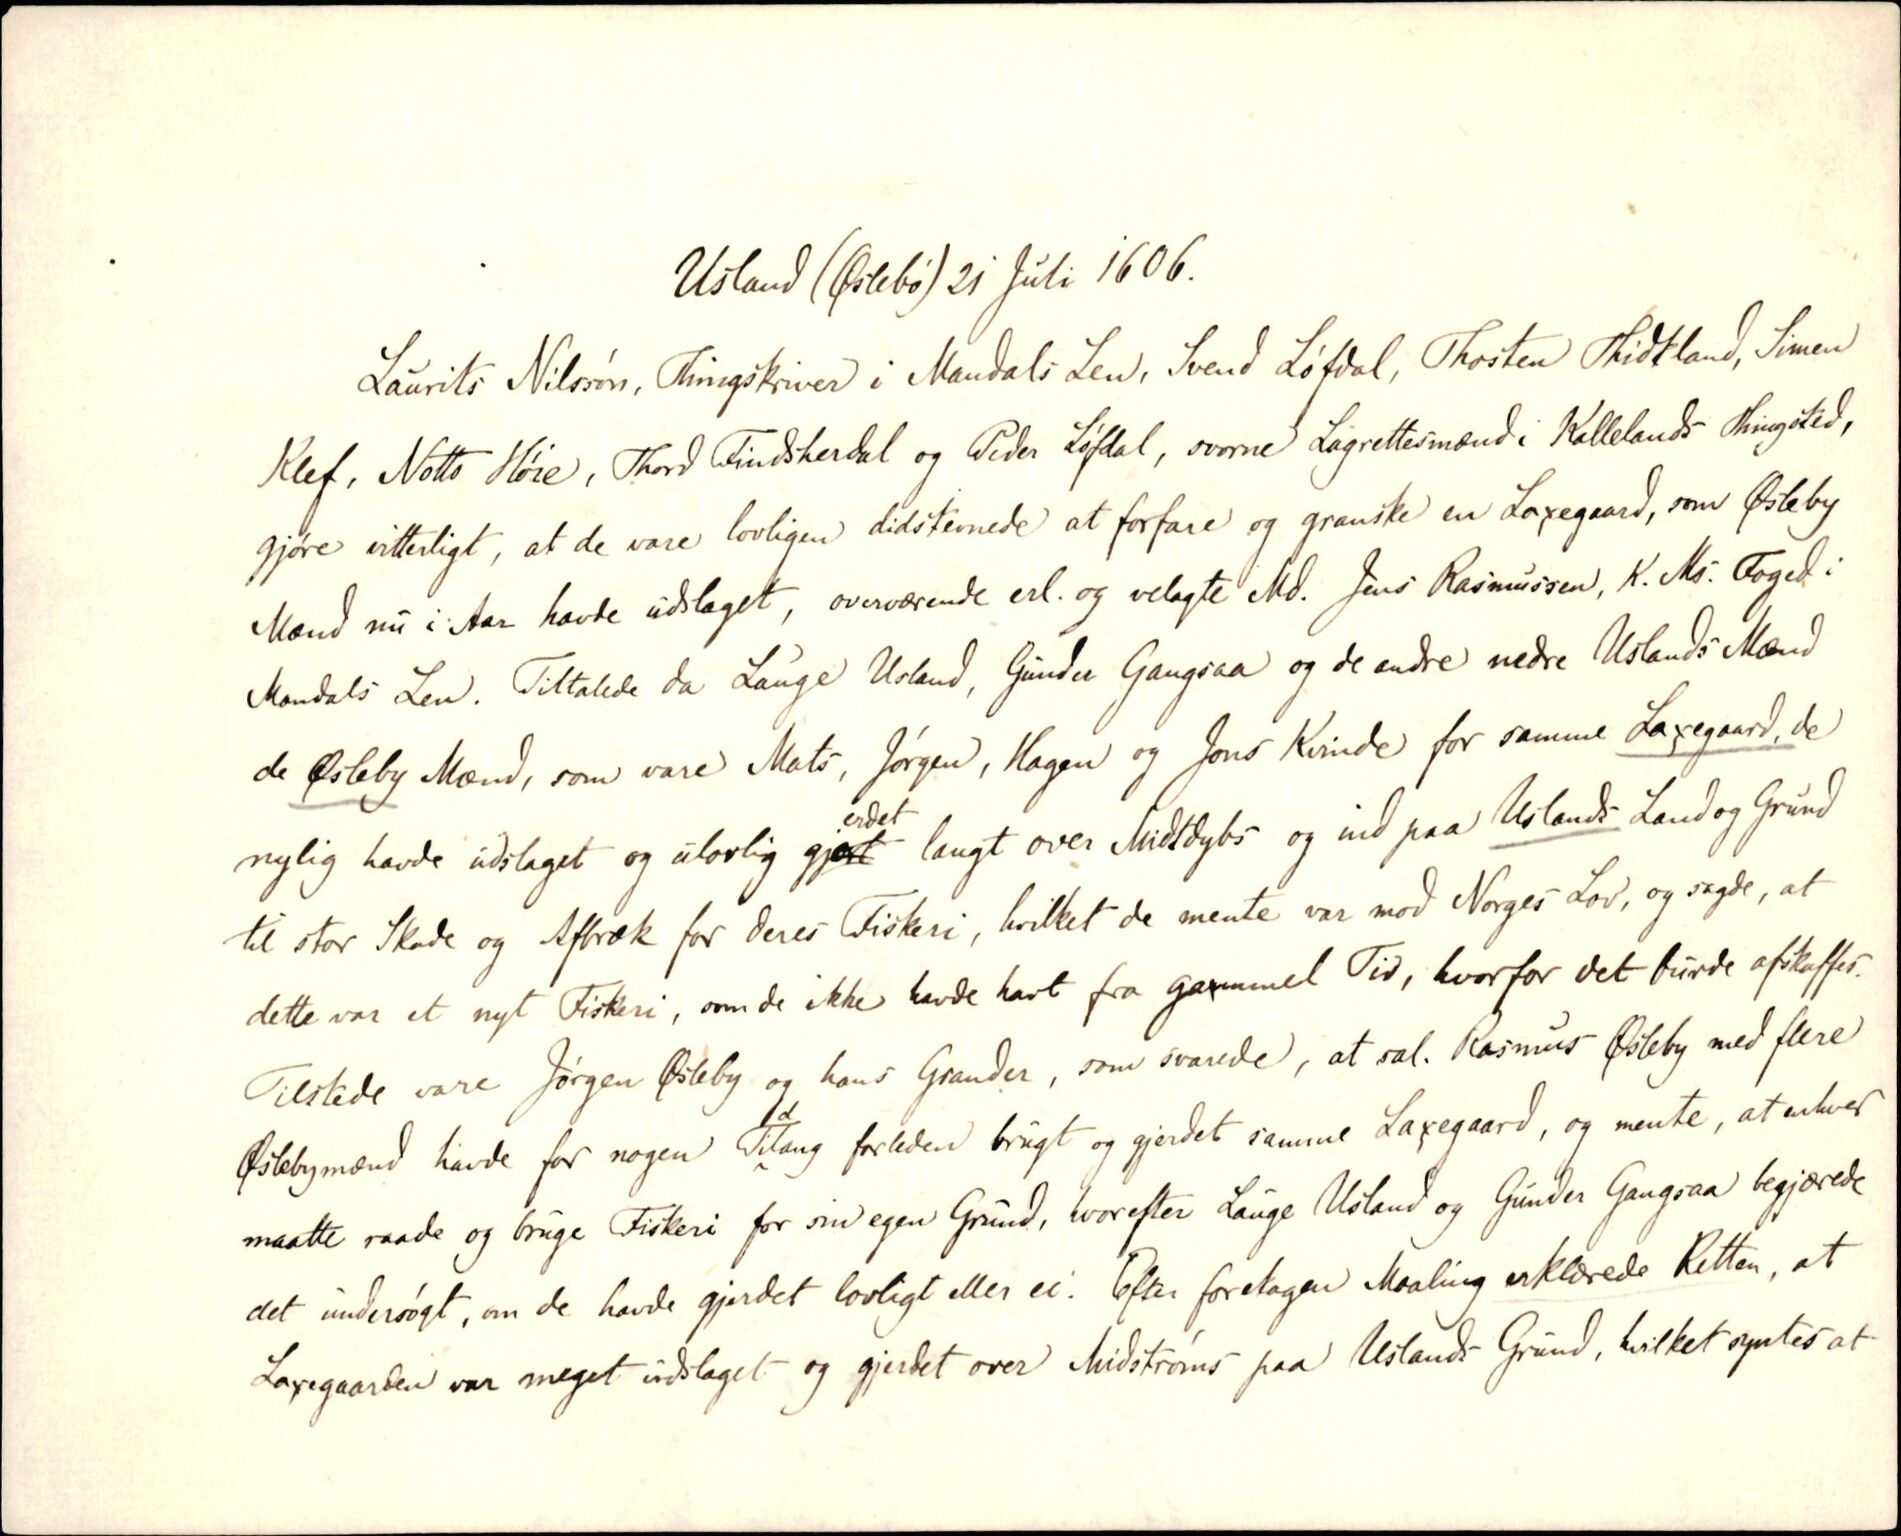 Usland (Øslebö) 21 Juli 1606.
Laurits Nilssön, Thingskriver i Mandals Len, Svend Löfdal, Thosten Thidtland, Simen
Klef, Notto Höie, Thord Findsherdal og Peder Löfdal, svorne Lagrettesmænd i Kallelands Thingsted,
gjöre vitterligt, at de vare lovligen didstevnede at forfare og granske en Laxegaard, som Øsleby
Mænd nu i Aar havde udslaget, overværende erl. og velagte Md. Jens Rasmussen, K. Ms. Foged i
Mandals Len. Tiltalede da Lauge Usland, Gunder Gangsaa og de andre nedre Uslands Mænd
de Øsleby Mænd, som vare Mats, Jörgen, Hagen og Jons Kvinde for samme Laxegaard, de
nylig havde udslaget og ulovlig gjerdet langt over Midtdybs og ind paa Uslands Land og Grund
til stor Skade og Afbræk for deres Fiskeri, hvilket de mente var mod Norges Lov, og sagde, at
dette var et nyt Fiskeri, som de ikke havde havt fra gammel Tid, hvorfor det burde afskaffes.
Tilstede vare Jörgen Øsleby og hans Grander, som svarede, at sal. Rasmus Øsleby med flere
Øslebymænd havde for nogen Tidlang forleden brugt og gjerdet samme Laxegaard, og mente, at enhver
maatte raade og bruge Fiskeri for sin egen Grund, hvorefter Lauge Usland og Gunder Gangsaa begjærede
det undersögt, om de havde gjerdet lovligt eller ei. Efter foretagen Maaling erklærede Retten, at
Laxegaarden var meget udslaget og gjerdet over Midströms paa Uslands Grund, hvilket syntes at